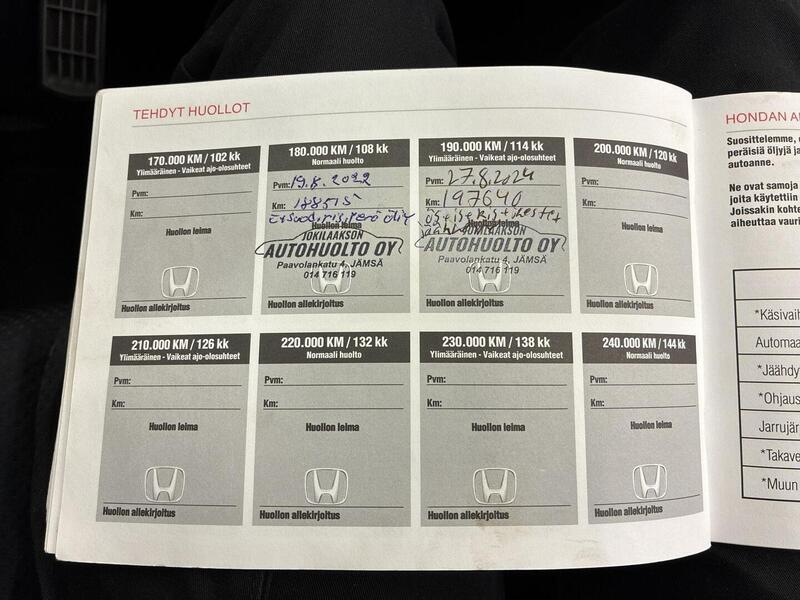 TEHDYT HUOLLOT
170.000 KM / 102 kk
Ylimääräinen - Vaikeat ajo-olosuhteet
Pvm:
Km:
Huollon leima
Huollon allekirjoitus
180.000 KM / 108 kk
Normaali huolto
Pvm: 19.8.2022
Km: 188515
Huollon leima
JOKILAAKSON
AUTOHUOLTO OY
Paavolankatu 4, JÄMSÄ
014 716 119
Huollon allekirjoitus
190.000 KM / 114 kk
Ylimääräinen - Vaikeat ajo-olosuhteet
Pvm: 27.8.2024
Km: 197640
Huollon leima
JOKILAAKSON
AUTOHUOLTO OY
Paavolankatu 4, JÄMSÄ
014 716 119
Huollon allekirjoitus
200.000 KM / 120 kk
Normaali huolto
Pvm:
Km:
Huollon leima
Huollon allekirjoitus
210.000 KM / 126 kk
Ylimääräinen - Vaikeat ajo-olosuhteet
Pvm:
Km:
Huollon leima
Huollon allekirjoitus
220.000 KM / 132 kk
Normaali huolto
Pvm:
Km:
Huollon leima
Huollon allekirjoitus
230.000 KM / 138 kk
Ylimääräinen - Vaikeat ajo-olosuhteet
Pvm:
Km:
Huollon leima
Huollon allekirjoitus
240.000 KM / 144 kk
Normaali huolto
Pvm:
Km:
Huollon leima
Huollon allekirjoitus
HONDAN A
Suosittelemme,
peräisiä öljyjä ja
autoanne.
Ne ovat samoja
joita käytettiin
Joissakin kohte
aiheuttaa vauri
*Käsivaih
Automaa
*Jäähdy
*Ohjaus
Jarrujär
*Takave
*Muun